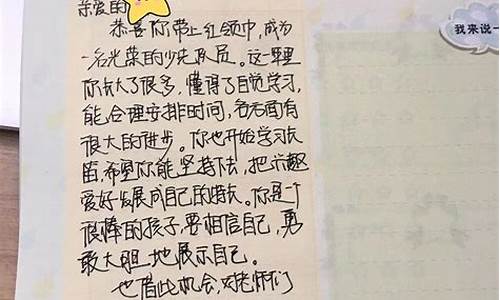 亲爱的
恭喜你带上红领巾,成为
一名光荣的少先队员。这一年里
你长大了很多,懂得了自觉学习,
能合理安排时间,各方面有
很大的进步。你也开始学习长
笛,希望你能坚持下去,把兴趣
爱好发展成自己的特长。你是一个
很棒的孩子,要相信自己,勇
敢大胆地展示自己。
也借此机会,对老师们
我来说一